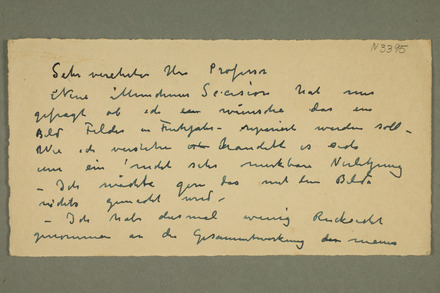 N 3395
Sehr verehrter Herr Professor
Neue Münchner Secession hat mich
gefragt ob ich wünsche das ein
Bild Felder im Frühjahr - repariert werden soll -
Wie ich verstehe handelt es sich
um ein nicht sehr merkbare Verletzung
- Ich möchte gern das mit dem Bilde
nichts gemacht wird -
- Ich habe diesmal wenig Rücksicht
genommen an die Gesammtwirkung meines